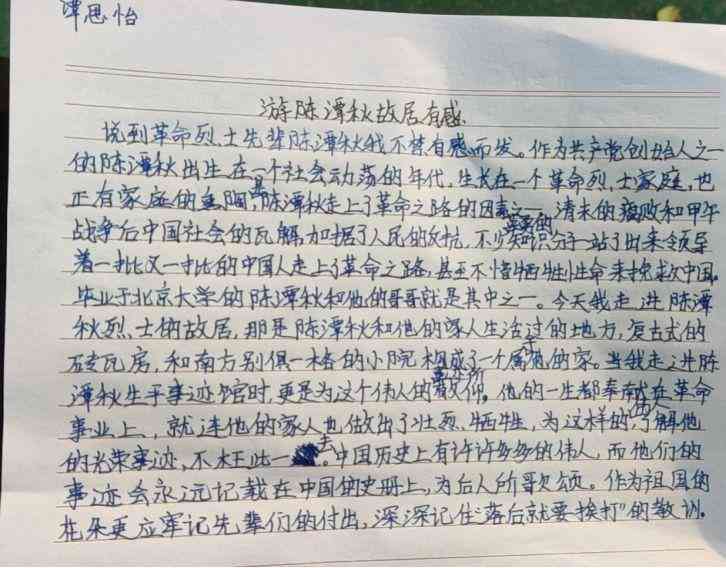 谭思怡
游陈潭秋故居有感
说到革命烈士先辈陈潭秋我不禁有感而发。作为共产党创始人之一
的陈潭秋出生在一个社会动荡的年代,生长在一个革命烈士家庭,也
正有家庭的熏陶是陈潭秋走上了革命之路的因素之一,清末的腐败和甲午
战争后中国社会的瓦解,加据了人民的反抗,不少知识分子站了出来领导
着一批又一批的中国人走上了革命之路,甚至不惜牺牲性命来拯救中国。
毕业于北京大学的陈潭秋和他的哥哥就是其中之一。今天我走进陈潭
秋烈士的故居,那是陈潭秋和他的家人生活过的地方,复古式的
砖瓦房,和南方别俱一格的小院构成了一个属于他的家。当我走进陈
潭秋生平事迹馆时,更是为这个伟人的敬仰,他的一生都奉献在革命
事业上,就连他的家人也做出了壮烈牺牲,为这样的伟人了解他
的光荣事迹,不枉此一去。中国历史上有许许多多的伟人,而他们的
事迹会永远记载在中国的史册上,为后人所歌颂。作为祖国的
花朵更应牢记先辈们的付出,深深记住“落后就要挨打”的教训。